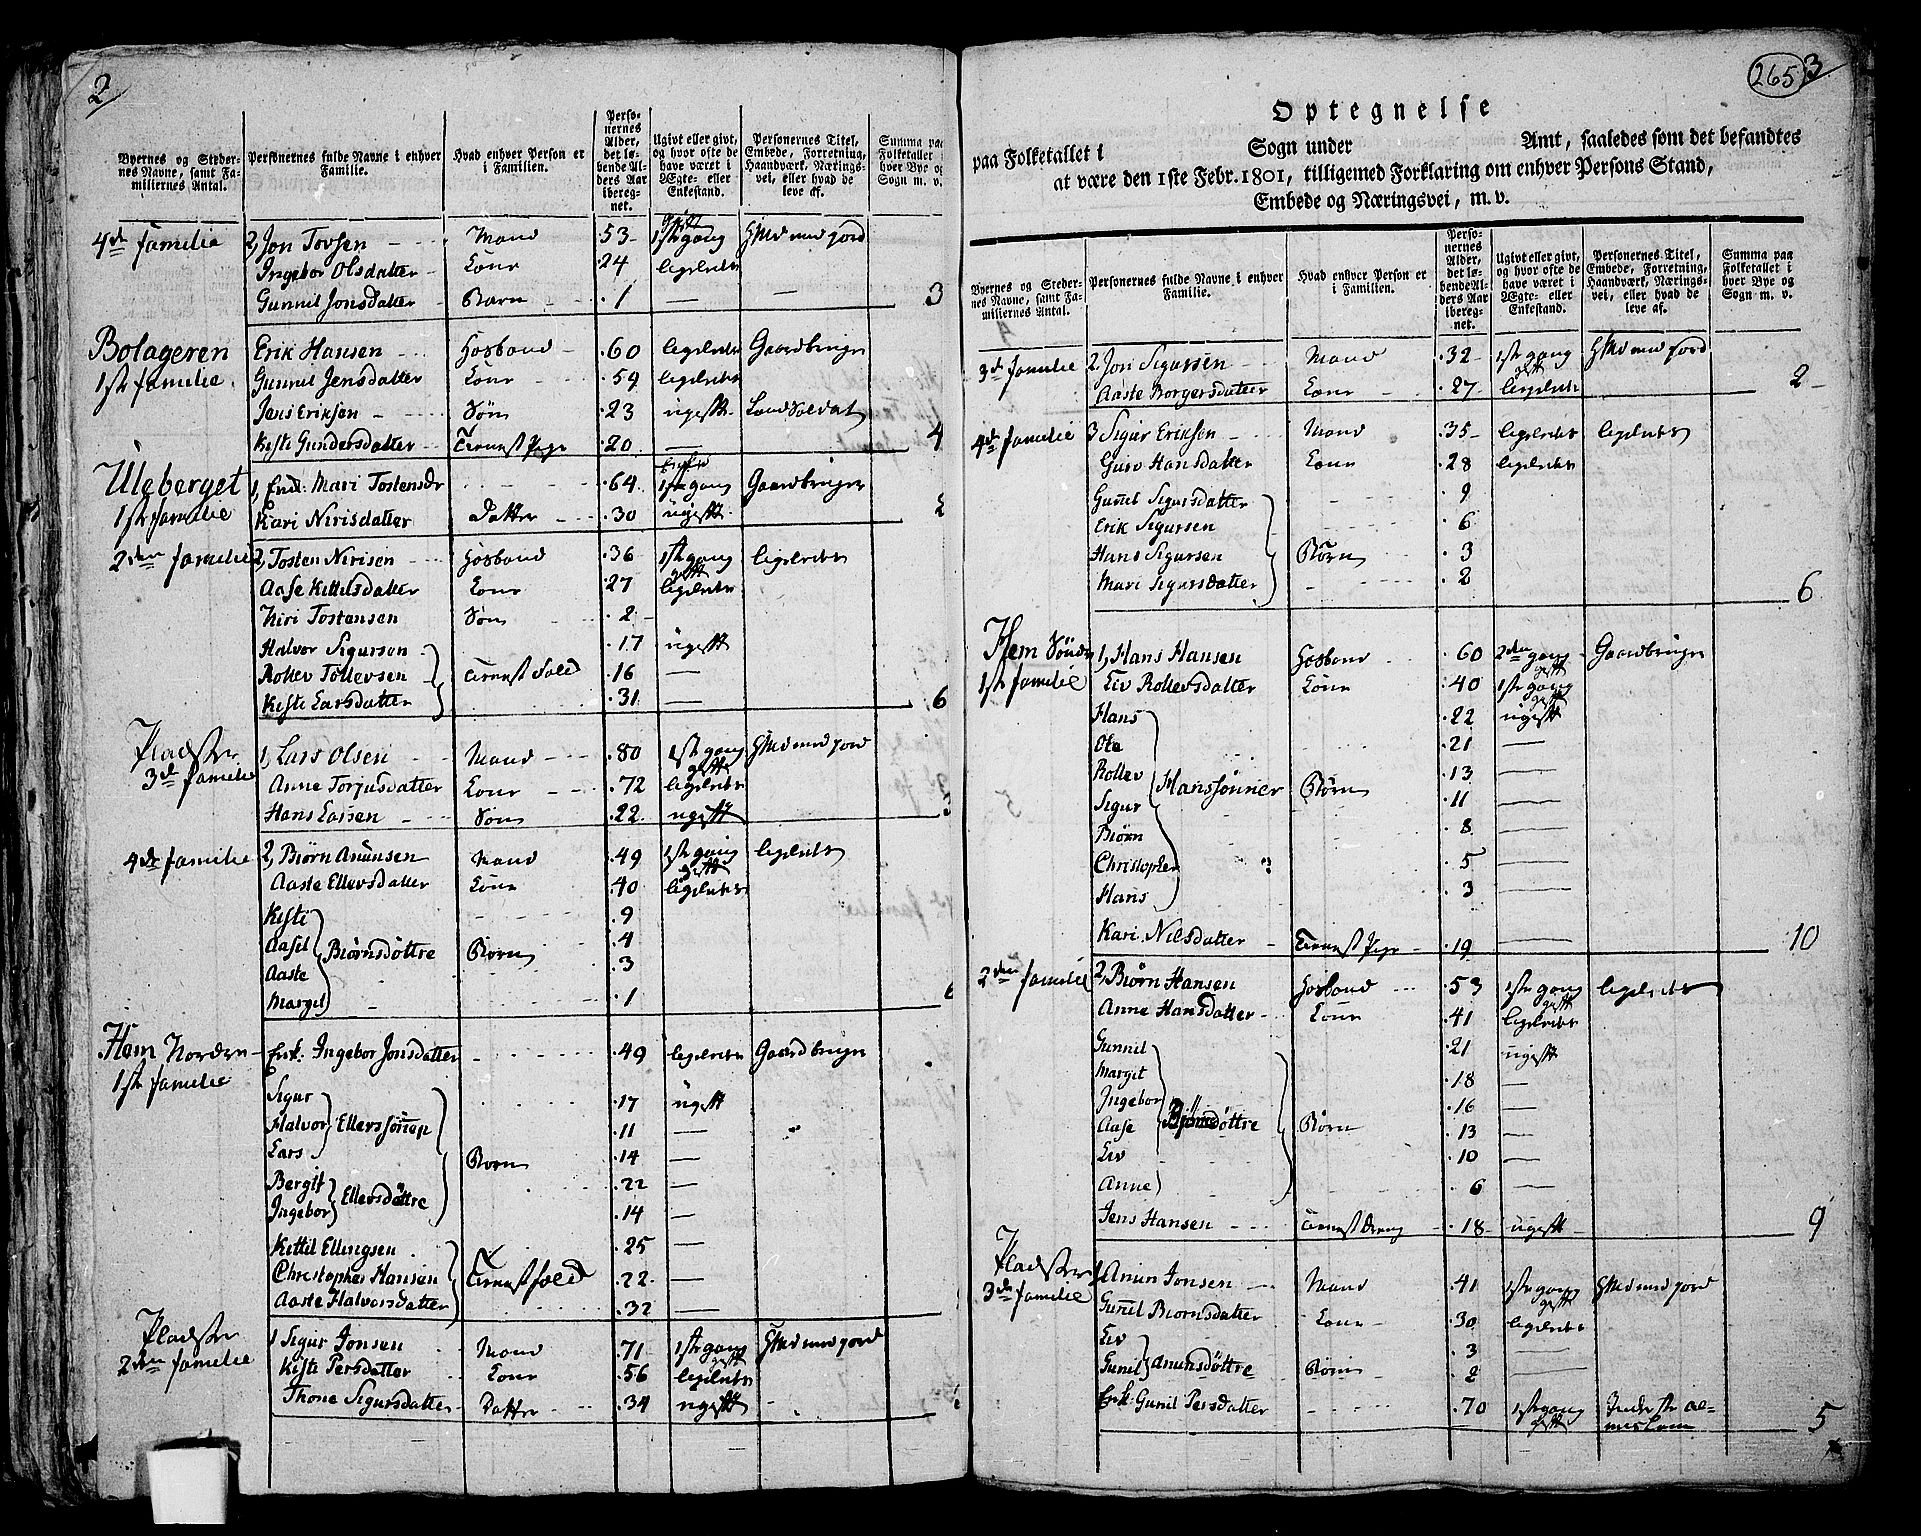 2
Byernes og Stedernes Navne, samt Familiernes Antal.
Personernes fulde Navne i enhver Familie.
Hvad enhver Person er i Familien.
Personernes Alder, det løbende Alders Aar iberegnet.
Ugivt eller givt, og hvor ofte de have været i Ægte- eller Enkestand.
Personernes Titel, Embede, Forretning, Haandværk, Næringsvei, eller hvad de leve af.
Summa paa Folketallet i hver Bye og Sogn m. v.
4de familie 2, Jon Tovsen Mand 53 1ste gang gift Huusmand med jord
Ingebor Olsdatter Kone 24 ligeledes
Gunnil Jonsdatter Barn 1 — 3
Bolageren Erik Hansen Hosbond 60 ligeledes Gaardbruger
1ste familie Gunnil Jensdatter Kone 59 ligeledes
Jens Eriksen Søn 23 ugift Land Soldat
Kiste Gundersdatter Tienest Pige 20 — 4
Uleberget 1, Enk: Mari Tostensdr 64 1ste gang Gaardbruger
1ste familie Kari Nirisdatter Datter 30 ugift 2
2den familie 2, Tosten Nirisen Hosbond 36 1ste gang gift ligeledes
Aase Kittilsdatter Kone 27 ligeledes
Niri Tostensen Søn 2
Halvor Sigurson 17 ugift
Rollev Tollevsen Tienest Folk 16 —
Kiste Larsdatter 31 — 6
Pladser 1, Lars Olsen Mand 80 1ste gang gift Huusmand med jord
3de familie Anne Torjusdatter Kone 72 ligeledes
Hans Larsen Søn 22 ugift 3
4de familie 2, Biørn Anunsen Mand 49 1ste gang gift ligeledes
Aaste Ellevsdatter Kone 40 ligeledes
Kiste 9
Aasil Biørnsdøttre Børn 4
Aaste 3
Margit 1 6
Hem Nordre Enk: Ingebor Jonsdatter 49 ligeledes Gaardbruger
1ste familie
Sigur 17 ugift
Halvor Ellevssønner 11 —
Lars 14 —
Børn
Bergit 22 —
Ingebor Ellevsdøttre 14 —
Kittil Ellingsen 25 —
Christopher Hansen Tienestfolk 22 —
Aaste Halvorsdatter 32 —
Pladser 1 Sigur Jonsen Mand 71 1ste gang gift Huusmand med jord
2den familie Kiste Persdatter Kone 56 ligeledes
Thone Sigursdatter Datter 34 ugift
265 3
Optegnelse
paa Folketallet i Sogn under Amt, saaledes som det befandtes
at være den 1ste Febr. 1801, tilligemed Forklaring om enhver Persons Stand,
Embede og Næringsvei, m. v.
Byernes og Stedernes Navne, samt Familiernes Antal.
Personernes fulde Navne i enhver Familie.
Hvad enhver Person er i Familien.
Personernes Alder, det løbende Alders Aar iberegnet.
Ugivt eller givt, og hvor ofte de have været i Ægte- eller Enkestand.
Personernes Titel, Embede, Forretning, Haandværk, Næringsvei, eller hvad de leve af.
Summa paa Folketallet i hver Bye og Sogn m. v.
3de familie 2 Jon Sigursen Mand 32 1ste gang gift Huusmand med jord
Aaste Borgersdatter Kone 27 ligeledes 2
4de familie 3 Sigur Eriksen Mand 35 ligeledes ligeledes
Guro Hansdatter Kone 28 ligeledes
Gunnil Sigursdatter 9
Erik Sigursen 6
Hans Sigursen Børn 3
Mari Sigursdatter 2 6
Hem Søndre 1, Hans Hansen Hosbond 60 2den gang gift Gaardbruger
1ste familie Liv Rollevsdatter Kone 40 1ste gang gift
Hans 22 ugift
Ole 21 —
Rollev Hanssønner Børn 13 —
Sigur 11 —
Biørn 8 —
Christopher 5 —
Hans 3 —
Kari Nilsdatter Tienest Pige 19 — 10
2den familie 2, Biørn Hansen Hosbond 53 1ste gang gift ligeledes
Anne Hansdatter Kone 41 ligeledes
Gunnil 21 ugift
Margit 18 —
Ingebor 16 —
Aase Biørnsdøttre Børn 13 —
Liv 10 —
Anne 6 —
Jens Hansen Tienest Dreng 18 ugift 9
Pladser 1 Anun Jonsen Mand 41 1ste gang gift Huusmand med jord
3de familie Gunnil Biørnsdatter Kone 30 ligeledes
Liv 3 —
Gunil Anunsdøttre Børn 2 —
Enk: Gunil Persdatter 70 1ste gang gift 5